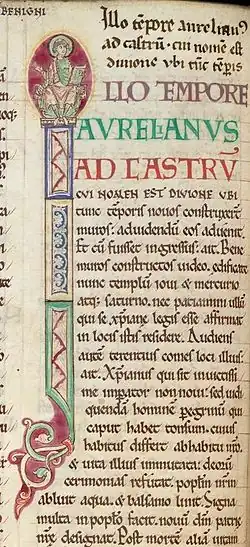 BENIGNI
Illo tēpore aurelianꝰ
ad castrū · cui nomē est
diuione ubi tūc tēp̄is
ILLO TEMPORE
AVRELIANVS
AD CASTRV̄
CVI NOMEN EST DIVIONE VBI
tunc tēporis nouos construxert̄
muros: aduidendū eos aduenit.
Et cū fuisset ingressus: ait. Bene
muros constructos uideo. edificate
nunc templum ioui & mercurio
atq; saturno. nec paciamini ullū
qui se xp̄iane legis esse affirmat
in locis istis residere. Audiens
autē terentius comes loci illius:
ait. Xp̄ianus qui sit inuictissi
me imꝑator non noui: sed uidi
quendā hominē peregrinū qui
caput habet tonsum. cuius
habitus differt abhabitu nr̄o.
& uita illius immutata: deorū
cerimonias refutat. popl̄m in
ablunt aqua. & balsamo linit. Signa
multa in pop̄lo facit. nouū dm̄ patrię
nr̄e designat. Post mortē aliā uitam